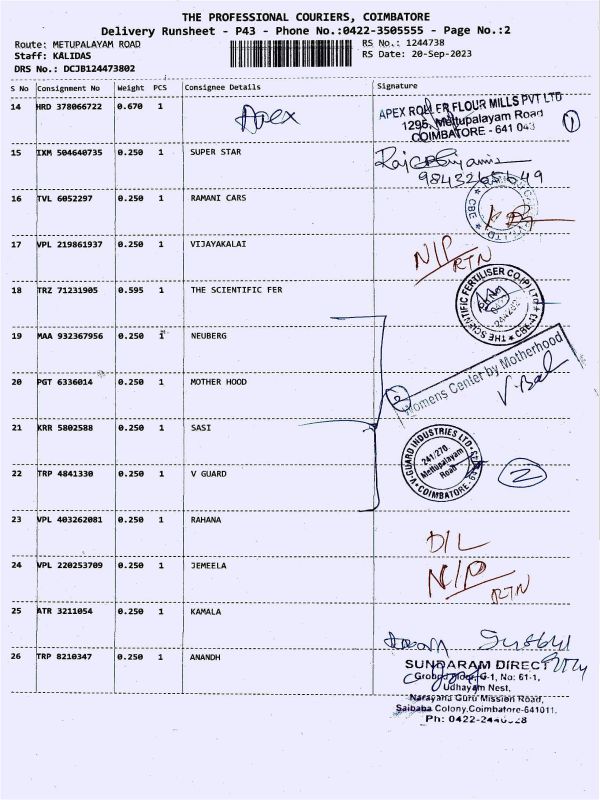 THE PROFESSIONAL COURIERS, COIMBATORE
Delivery Runsheet - P43 - Phone No.:0422-3505555 - Page No.:2
Route: METUPALAYAM ROAD RS No.: 1244738
Staff: KALIDAS RS Date: 20-Sep-2023
DRS No.: DCJB124473802
S No Consignment No Weight PCS Consignee Details Signature
14 HRD 378066722 0.670 1 Apex
APEX ROLLER FLOUR MILLS PVT LTD
1295, Mettupalayam Road
COIMBATORE - 641 043 1
15 IXM 504640735 0.250 1 SUPER STAR
16 TVL 6052297 0.250 1 RAMANI CARS
17 VPL 219861937 0.250 1 VIJAYAKALAI N/P
RTN
18 TRZ 71231905 0.595 1 THE SCIENTIFIC FER THE SCIENTIFIC FERTILISER CO (P) LTD CBE-43
19 MAA 932367956 0.250 1 NEUBERG
20 PGT 6336014 0.250 1 MOTHER HOOD Womens Center by Motherhood
2 V. Bal
21 KRR 5802588 0.250 1 SASI
22 TRP 4841330 0.250 1 V GUARD V-GUARD INDUSTRIES LTD
241/270
Mettupalayam
Road
COIMBATORE 2
23 VPL 403262081 0.250 1 RAHANA D/L
24 VPL 220253709 0.250 1 JEMEELA N/P
RTN
25 ATR 3211054 0.250 1 KAMALA
26 TRP 8210347 0.250 1 ANANDH
SUNDARAM DIRECT
G-1, No: 61-1,
Udhayam Nest,
Narayana Guru Mission Road,
Saibaba Colony, Coimbatore-641011.
Ph: 0422-